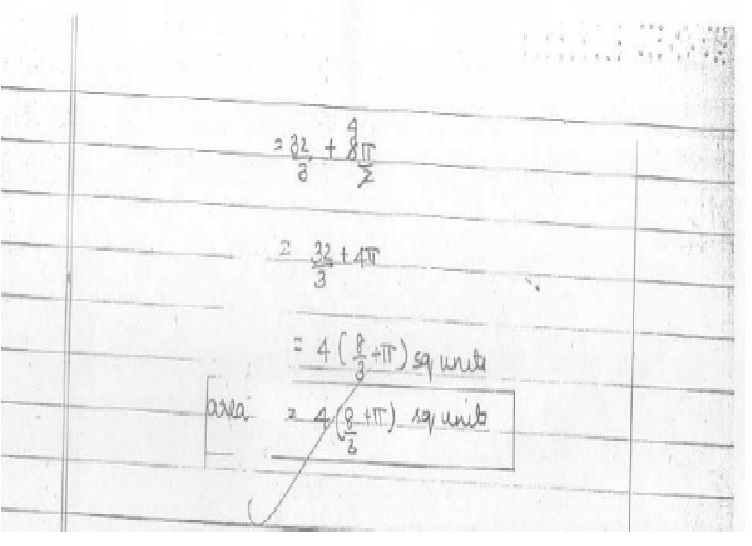 = 32/3 + 8π/2 4
= 32/3 + 4π
= 4(8/3+π) sq units
area = 4(8/3+π) sq units